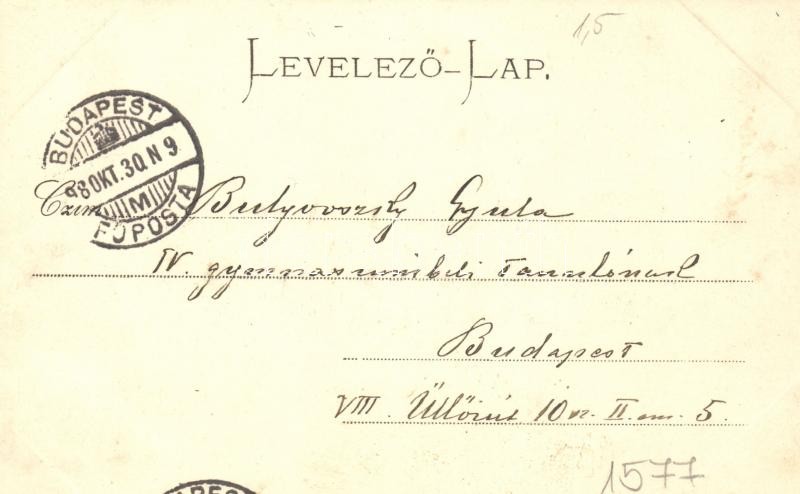 1,5
LEVELEZŐ-LAP.
BUDAPEST
98 OKT. 30. N 9
M
FŐPOSTA
Czim
Butyovszky Gyula
IV. gymnasiumbeli tanulónak
Budapest
VIII. Üllőiút 10 sz. II. em. 5.
1577